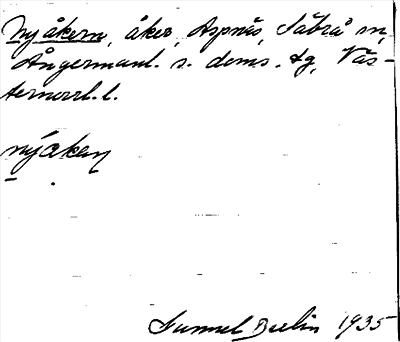 Nyåkern, åker, Aspnäs, Säbrå sn,
Ångermanl. s. doms. tg, Väs-
ternorrl. l.
nýåkaṇ
Gunnel Beelin 1935